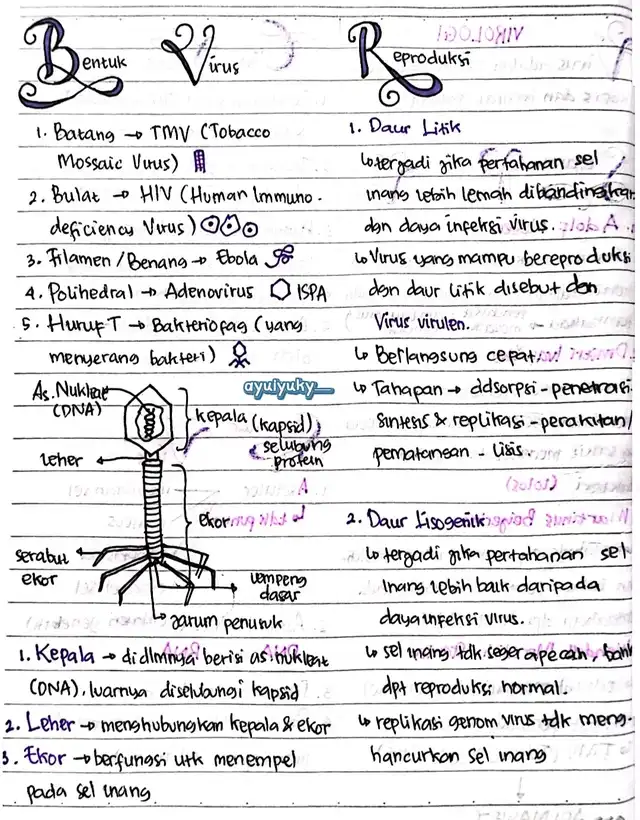 Bentuk Virus
1. Batang → TMV (Tobacco
Mossaic Virus)
2. Bulat → HIV (Human Immuno-
deficiency Virus)
3. Filamen / Benang → Ebola
4. Polihedral → Adenovirus ISPA
5. Huruf T → Bakteriopag (yang
menyerang bakteri)
ayulyuky__
As. Nukleat
(DNA)
kepala (kapsid)
selubung
protein
Leher
ekor
serabut
ekor
Lempeng
dasar
Jarum penusuk
1. Kepala → didlmnya berisi as. nukleat
(DNA), luarnya diselubungi kapsid
2. Leher → menghubungkan kepala & ekor
3. Ekor → berfungsi utk menempel
pada sel inang
Reproduksi
1. Daur Litik
↳ terjadi jika pertahanan sel
inang lebih lemah dibandingkan
dgn daya infeksi virus.
↳ Virus yang mampu bereproduksi
dgn daur litik disebut dgn
Virus virulen.
↳ Berlangsung cepat.
↳ Tahapan → adsorpsi - penetrasi
sintesis & replikasi - perakitan/
pematangan - lisis.
2. Daur Lisogenik
↳ terjadi jika pertahanan sel
inang lebih baik daripada
daya infeksi virus.
↳ sel inang tdk segera pecah, bahk
dpt reproduksi normal.
↳ replikasi genom virus tdk meng-
hancurkan sel inang
VIROLOGI